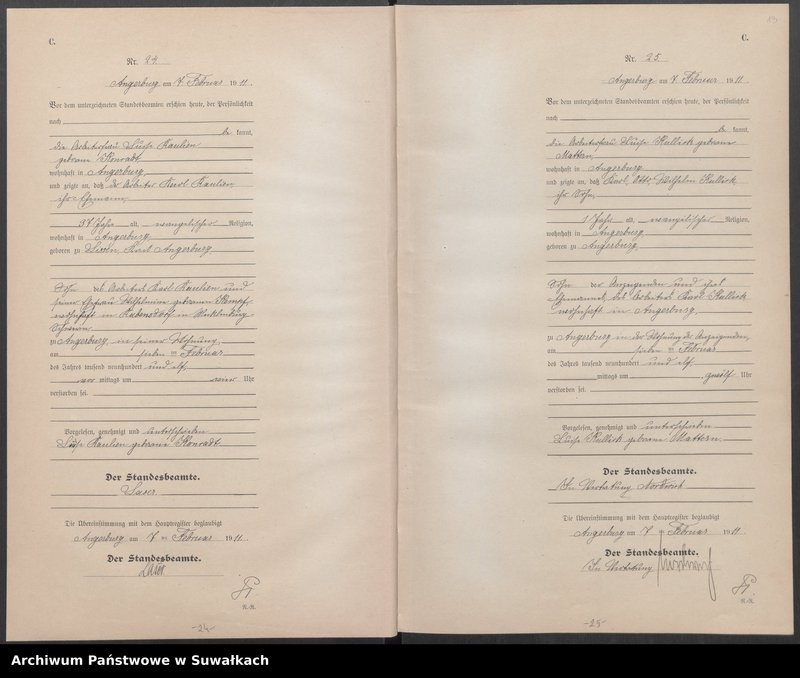 C.
Nr. 24
Angerburg am 7. Februar 1911.
Vor dem unterzeichneten Standesbeamten erschien heute, der Persönlichkeit
nach
be kannt,
die Arbeiterfrau Luise Kaulien
geborene Konradt,
wohnhaft in Angerburg,
und zeigte an, daß der Arbeiter Karl Kaulien,
ihr Ehemann,
37 Jahre alt, evangelischer Religion,
wohnhaft in Angerburg,
geboren zu Kreis Angerburg
Sohn des Arbeiters Karl Kaulien und
seiner Ehefrau Wilhelmine geborenen
wohnhaft in in Mecklenburg
Schwerin
zu Angerburg, in seiner Wohnung,
am sieben ten Februar
des Jahres tausend neunhundert und elf,
vor mittags um Uhr
verstorben sei.
Vorgelesen, genehmigt und unterschrieben
Luise Kaulien geborene Konradt
Der Standesbeamte.
Die Übereinstimmung mit dem Hauptregister beglaubigt
Angerburg am 7. ten Februar 1911.
Der Standesbeamte.
N.-R.
-24-
13
C.
Nr. 25
Angerburg am 7. Februar 1911.
Vor dem unterzeichneten Standesbeamten erschien heute, der Persönlichkeit
nach
be kannt,
die Arbeiterfrau Luise Kullick geborene
Mattern,
wohnhaft in Angerburg,
und zeigte an, daß Karl Otto Wilhelm Kullick,
ihr Sohn,
1 Jahr alt, evangelischer Religion,
wohnhaft in Angerburg,
geboren zu Angerburg,
Sohn der Anzeigenden und ihres
Ehemannes, des Arbeiters Karl Kullick
wohnhaft in Angerburg,
zu Angerburg in der Wohnung der Anzeigenden,
am sieben ten Februar
des Jahres tausend neunhundert und elf,
mittags um zwölf Uhr
verstorben sei.
Vorgelesen, genehmigt und unterschrieben
Luise Kullick geborene Mattern
Der Standesbeamte.
In Vertretung
Die Übereinstimmung mit dem Hauptregister beglaubigt
Angerburg am 7. ten Februar 1911.
Der Standesbeamte.
In Vertretung
N.-R.
-25-
Archiwum Państwowe w Suwałkach